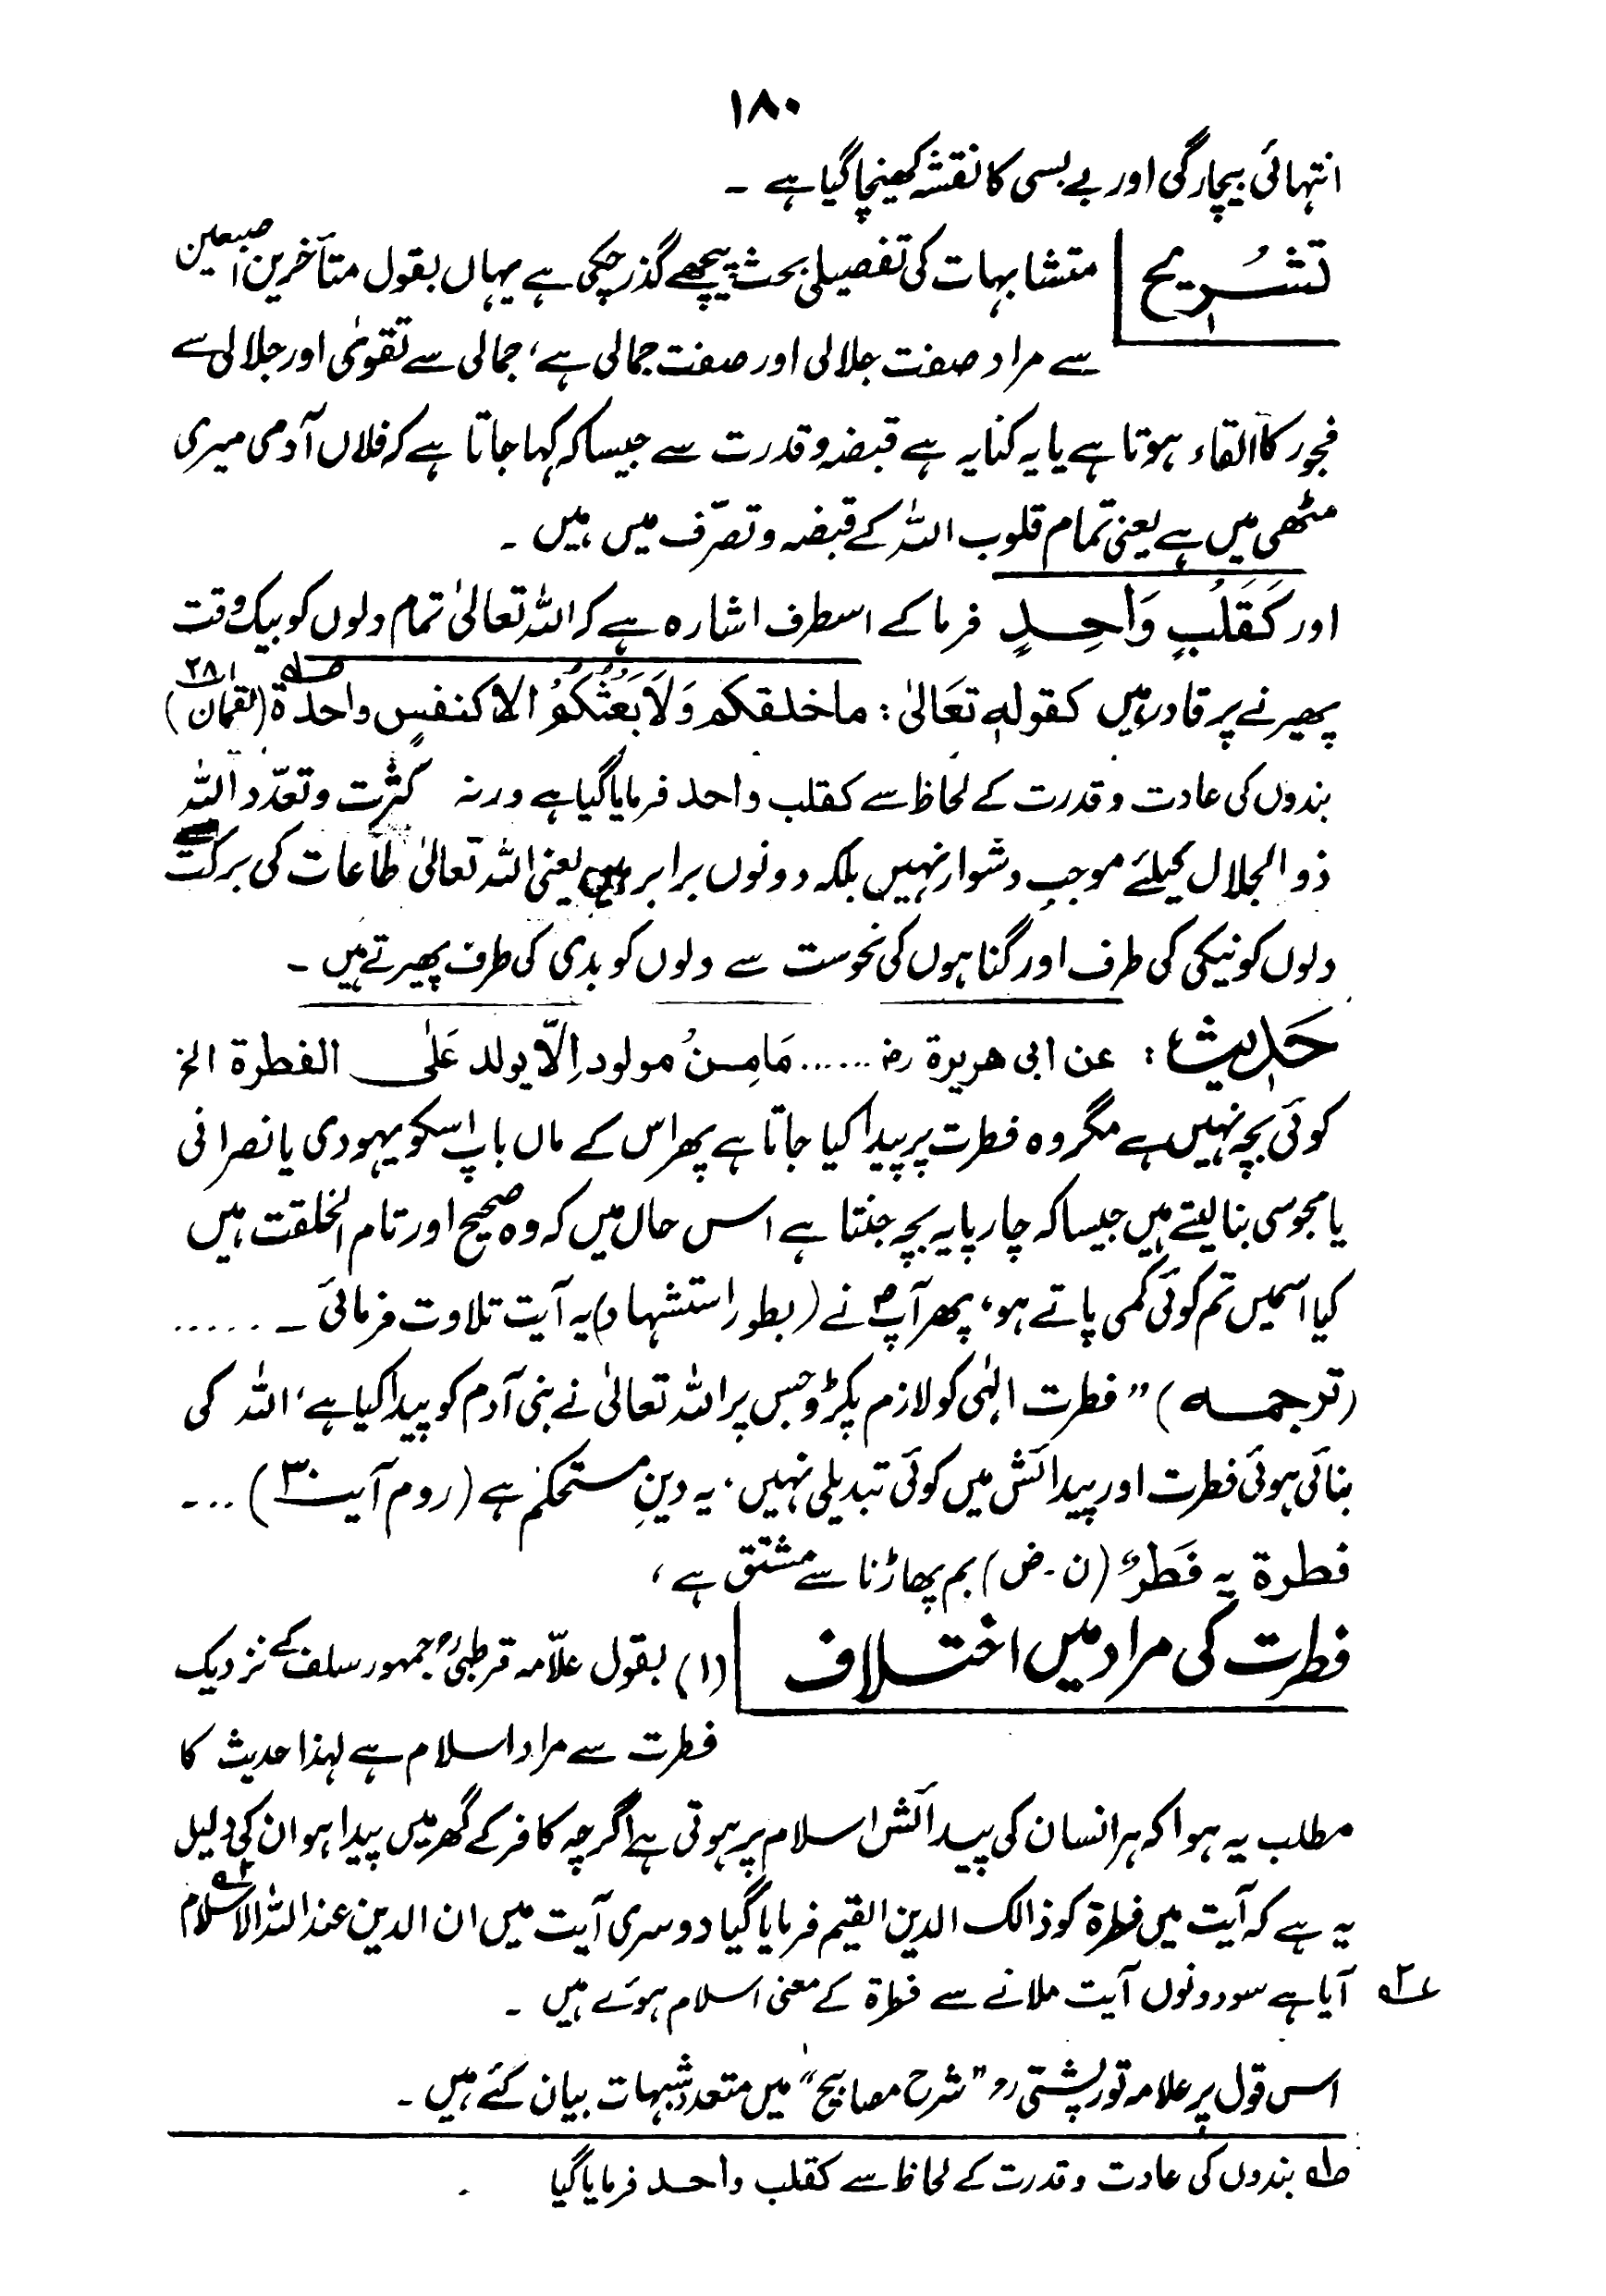 ۱۸۰
انتہائی بیچارگی اور بے بسی کا نقشہ کھینچا گیا ہے ۔
تشریح متشابہات کی تفصیلی بحث پیچھے گذر چکی ہے یہاں بقول متأخرین اصبعین
سے مراد صفت جلالی اور صفت جمالی ہے، جمالی سے تقویٰ اور جلالی سے
فجور کا القاء ہوتا ہے یا یہ کنایہ ہے قبضہ و قدرت سے جیسا کہ کہا جاتا ہے کہ فلاں آدمی میری
مٹھی میں ہے یعنی تمام قلوب اللہ کے قبضہ و تصرّف میں ہیں ۔
اور کَقَلْبٍ وَاحِدٍ فرما کے اسطرف اشارہ ہے کہ اللہ تعالیٰ تمام دلوں کو بیک وقت
پھیرنے پر قادر ہیں کقولہٖ تَعَالیٰ : ماخلقکم وَلَا بَعْثُکُمْ الا کنفسٍ واحدۃ (لقمان ۲۸)
بندوں کی عادت و قدرت کے لحاظ سے کقلب واحد فرمایا گیا ہے ورنہ کثرت و تعدّد اللہ
ذو الجلال کیلئے موجب دشوار نہیں بلکہ دونوں برابر ہیں یعنی اللہ تعالیٰ طاعات کی برکت سے
دلوں کو نیکی کی طرف اور گناہوں کی نحوست سے دلوں کو بدی کی طرف پھیرتے ہیں ۔
حَدِیث : عن ابی ھریرۃ رض ...... مَامِنْ مولود اِلّا یولد عَلٰی الفطرۃ الخ
کوئی بچہ نہیں ہے مگر وہ فطرت پر پیدا کیا جاتا ہے پھر اس کے ماں باپ اسکو یہودی یا نصرانی
یا مجوسی بنا لیتے ہیں جیسا کہ چارپایہ بچہ جنتا ہے اس حال میں کہ وہ صحیح اور تام الخلقت ہیں
کیا اسمیں تم کوئی کمی پاتے ہو، پھر آپ ﷺ نے (بطور استشہاد) یہ آیت تلاوت فرمائی ۔ .....
(ترجمہ) " فطرت الٰہی کو لازم پکڑو جس پر اللہ تعالیٰ نے بنی آدم کو پیدا کیا ہے، اللہ کی
بنائی ہوئی فطرت اور پیدائش میں کوئی تبدیلی نہیں، یہ دینِ مستحکم ہے (روم آیت ۳۰) ... ۔
فطرۃ یہ فَطْرٌ (ن ۔ ض) بم پھاڑنا سے مشتق ہے ،
فطرت کی مراد میں اختلاف (۱) بقول علّامہ قرطبیؒ جمہور سلف کے نزدیک
فطرت سے مراد اسلام ہے لہذا حدیث کا
مطلب یہ ہوا کہ ہر انسان کی پیدائش اسلام پر ہوتی ہے اگرچہ کافر کے گھر میں پیدا ہو ان کی دلیل
یہ ہے کہ آیت میں فطرۃ کو ذالک الدین القیم فرمایا گیا دوسری آیت میں ان الدین عند اللہ الاسلام
آیا ہے سو دونوں آیت ملانے سے فطرۃ کے معنی اسلام ہوئے ہیں ۔
اس قول پر علامہ تورپشتی رح " شرح مصابیح " میں متعدد شبہات بیان کئے ہیں ۔
ط۱ بندوں کی عادت و قدرت کے لحاظ سے کقلب واحد فرمایا گیا